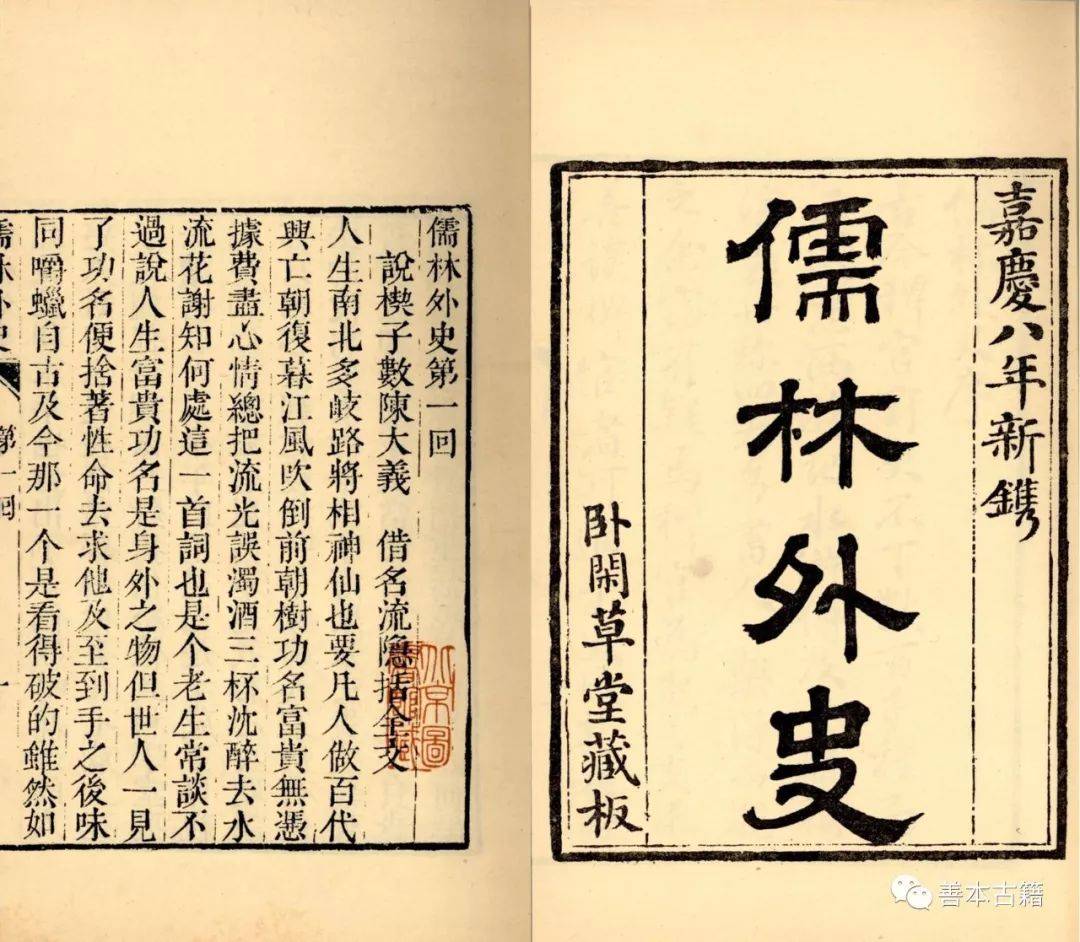 嘉慶八年新鐫
儒林外史
卧閑草堂藏板
儒林外史第一回
說楔子敷陳大義　借名流隱括全文
人生南北多岐路將相神仙也要凡人做百代
興亡朝復暮江風吹倒前朝樹功名富貴無憑
據費盡心情總把流光誤濁酒三杯沈醉去水
流花謝知何處這一首詞也是个老生常談不
過說人生富貴功名是身外之物但世人一見
了功名便捨著性命去求他及至到手之後味
同嚼蠟自古及今那一个是看得破的雖然如
儒林外史　第一回　一
善本古籍